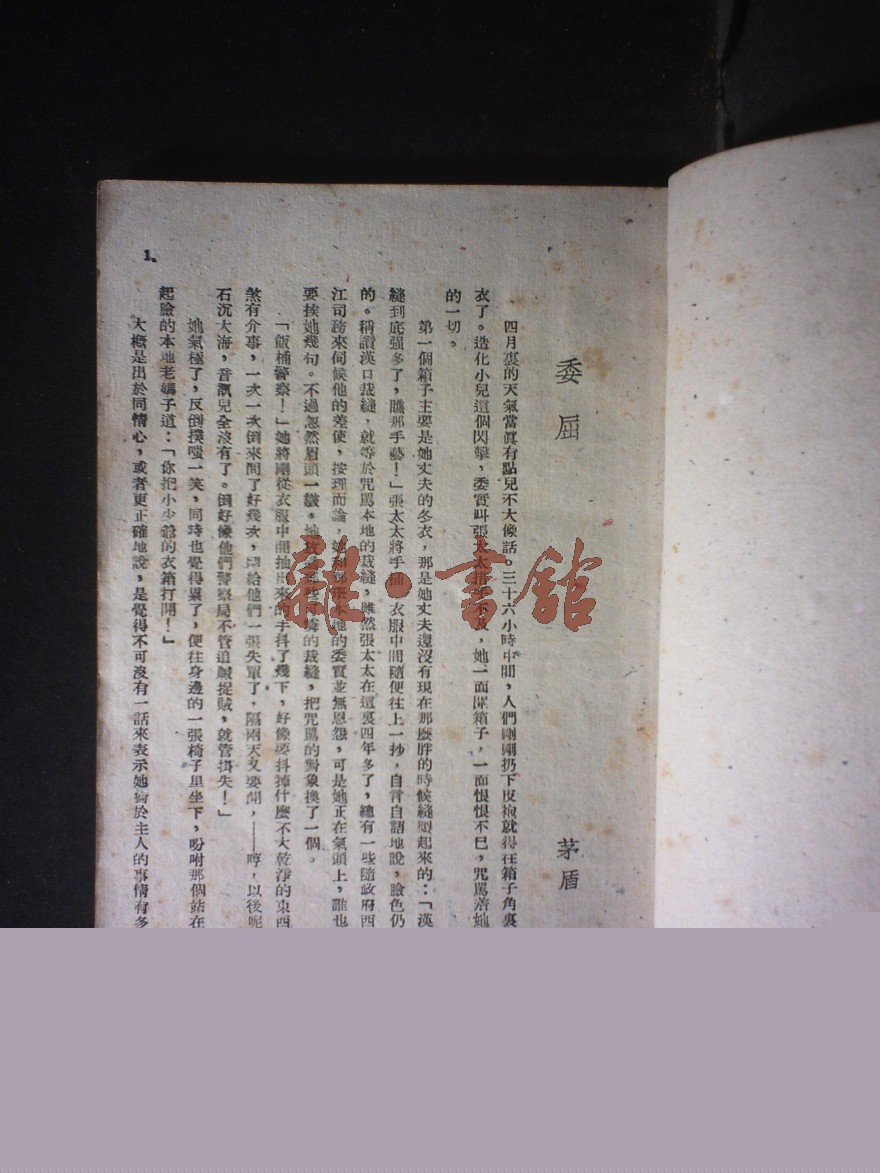 委屈
茅盾
四月裏的天氣當眞有點兒不大像話。三十六小時中間，人們剛剛扔下皮袍就得在箱子角裏
衣了。造化小兒這個閃擊，委實叫張太太措手不及，她一面開箱子，一面恨恨不已，咒罵着她
的一切。
第一個箱子主要是她丈夫的冬衣，那是她丈夫還沒有現在那麼胖的時候縫起來的：「漢
縫到底强多了，瞧那手藝！」張太太將手插 衣服中間隨便往上一抄，自言自語地說，臉色仍
的。稱讚漢口裁縫，就等於咒罵本地的裁縫，雖然張太太在這裏四年多了，總有一些隨政府西
江司務來伺候他的差使，按理而論，她和那張本地的委實並無恩怨，可是她正在氣頭上，誰也
要挨她幾句。不過忽然眉頭一皺，她放 那些可憐的裁縫，把咒罵的對象換了一個。
「飯桶警察！」她將剛從衣服中間抽出來的手抖了幾下，好像要抖掉什麼不大乾淨的東西
煞有介事，一次一次倒來問了好幾次， 給他們一張失單了，隔兩天又要開，——哼，以後呢
石沉大海，音訊兒全沒有了。倒好像他們警察局不管追贓捉賊，就管損失！」
她氣極了，反倒撲嗤一笑，同時也覺得累了，便往身邊的一張椅子里坐下，吩咐那個站在
起臉的本地老媽子道：「你把小少爺的衣箱打開！」
大概是出於同情心，或者更正確地說，是覺得不可沒有一話來表示她 於主人的事情有多
1.
雜·書館